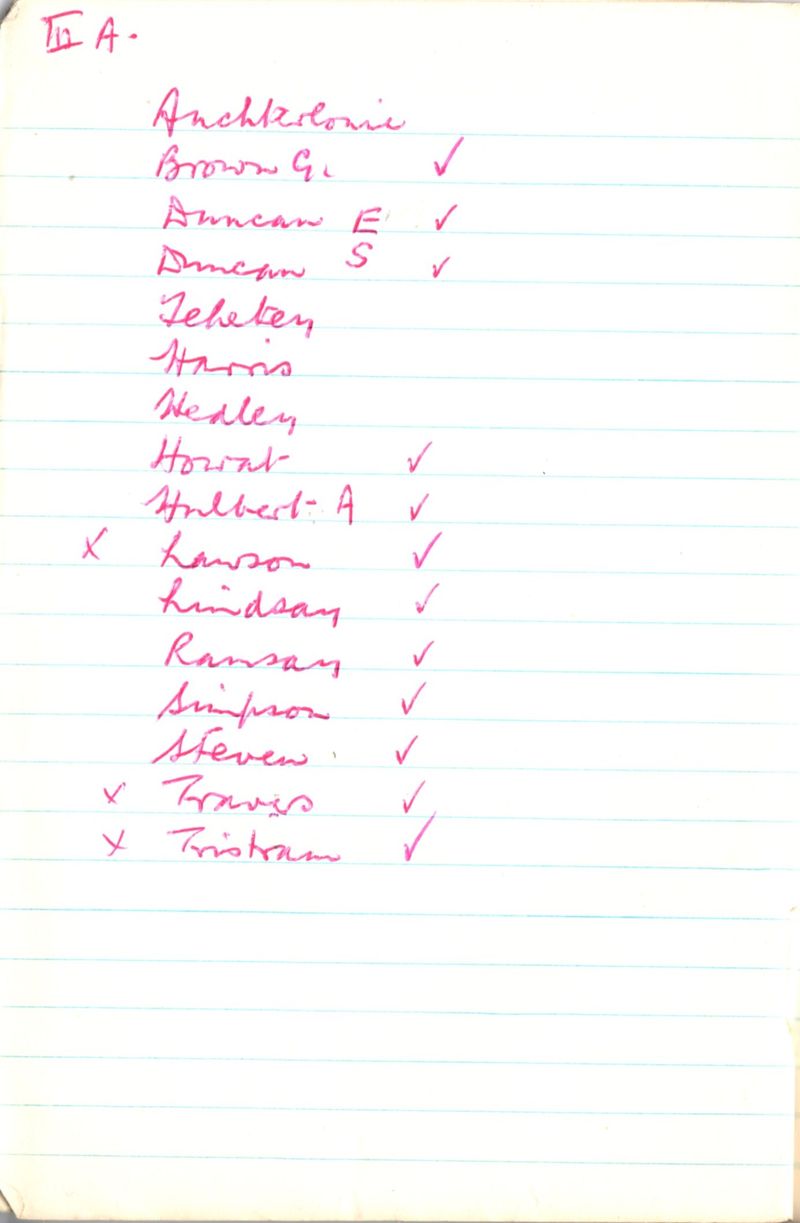 III A.
Auchterlonie
Brown G. ✓
Duncan E ✓
Duncan S ✓
Harris
Hedley
Howat ✓
Hulbert A ✓
x Lawson ✓
Lindsay ✓
Ramsay ✓
Simpson ✓
Steven ✓
x Travers ✓
x Tristram ✓